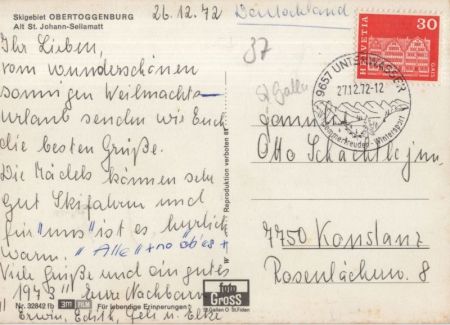 Skigebiet OBERTOGGENBURG
Alt St. Johann-Sellamatt
26.12.72
Deutschland
37
St Gallen
HELVETIA
30
GAIS
9657 UNTERWASSER
27.12.72-12
Wintersport
Ihr Lieben,
vom wunderschönen
sonnigen Weihnachts-
urlaub senden wir Euch
die besten Grüße.
Die Mädels können sehr
gut Skifahren und
für "uns" ist es herrlich
warm. "Alle
Viele Grüße und ein gutes
1973" Eure Nachbarn
Erwin, Edith,
Familie
Otto Schächtle jun.
7750 Konstanz
Rosenlächer. 8
Reproduktion verboten
Nr. 32842 fb
3m FILM
Für lebendige Erinnerungen
foto
GROSS
St.Gallen